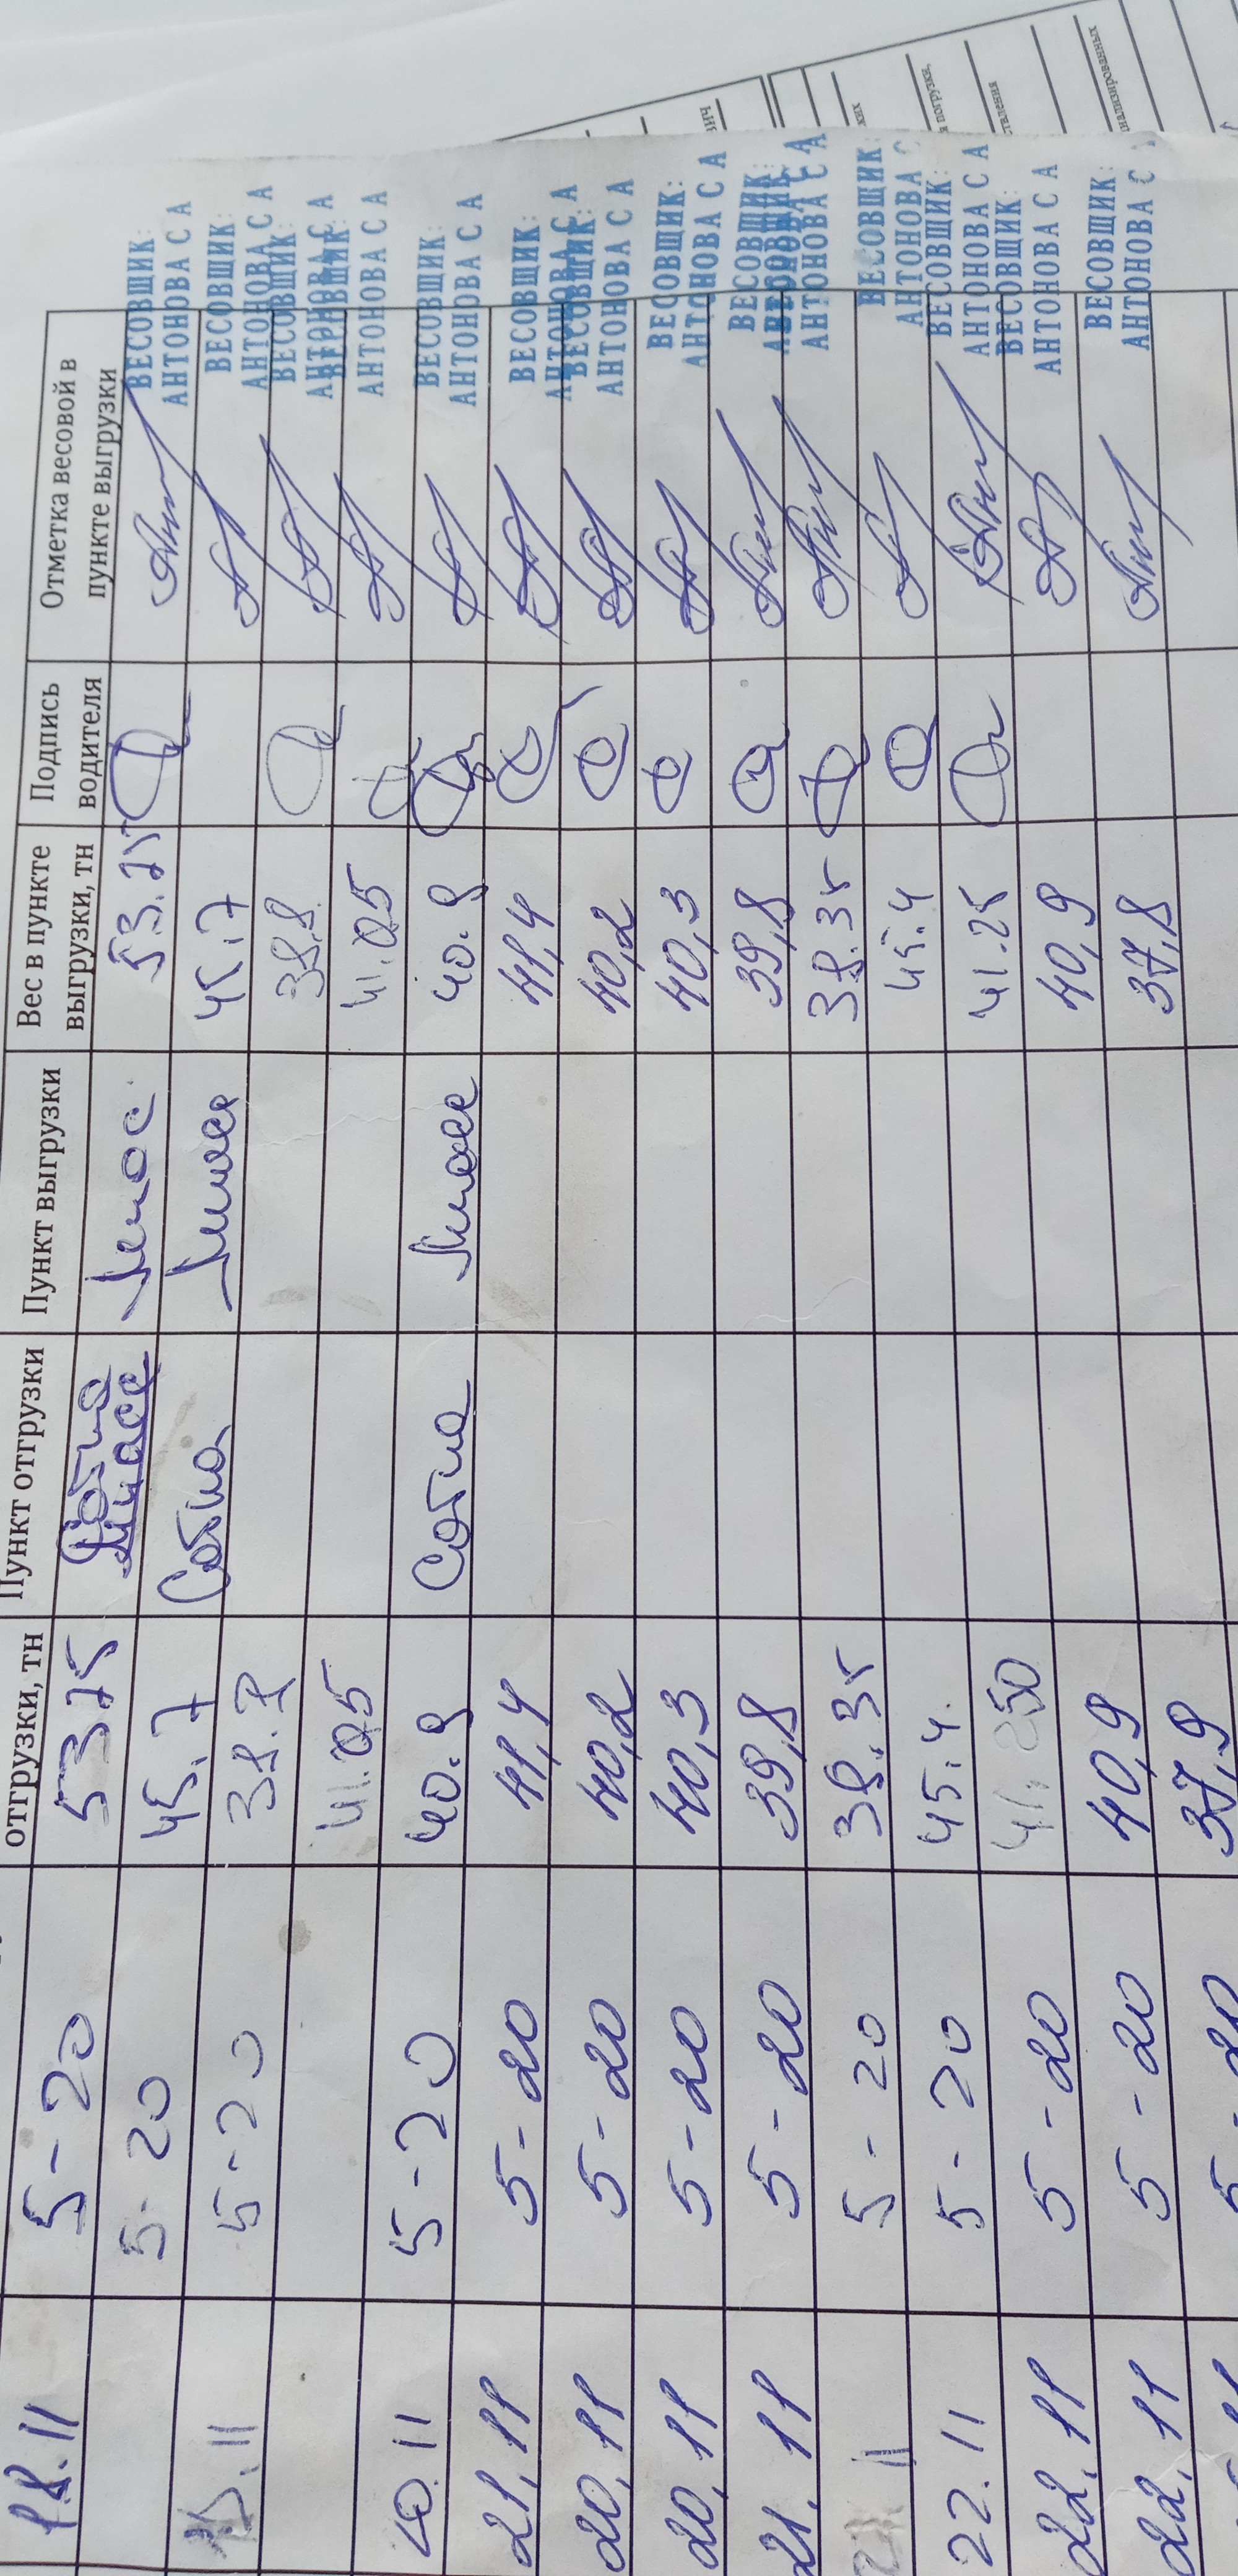 отгрузки, тн Пункт отгрузки Пункт выгрузки Вес в пункте выгрузки, тн Подпись водителя Отметка весовой в пункте выгрузки
18.11 5-20 53.25 Сотка Миасс Миасс 53.25 ВЕСОВЩИК: АНТОНОВА С А
5-20 45.7 Миасс 45.7 ВЕСОВЩИК: АНТОНОВА С А
11 5-20 38.8 ВЕСОВЩИК: АНТОНОВА С А
41.05 41.05 ВЕСОВЩИК: АНТОНОВА С А
20.11 5-20 40.9 Миасс 40.9 ВЕСОВЩИК: АНТОНОВА С А
21.11 5-20 41,4 41,4 ВЕСОВЩИК: АНТОНОВА С А
20.11 5-20 40,2 40,2 ВЕСОВЩИК: АНТОНОВА С А
20.11 5-20 40,3 40,3 ВЕСОВЩИК: АНТОНОВА С А
21.11 5-20 39,8 39,8 ВЕСОВЩИК:
5-20 38.35 38.35 ВЕСОВЩИК: АНТОНОВА С А
22.11 5-20 45.4 45.4 ВЕСОВЩИК: АНТОНОВА С
22.11 5-20 41.250 41.25 ВЕСОВЩИК: АНТОНОВА С А
22.11 5-20 40,9 40,9 ВЕСОВЩИК: АНТОНОВА С А
37,9 37,8 ВЕСОВЩИК: АНТОНОВА С
погрузки,